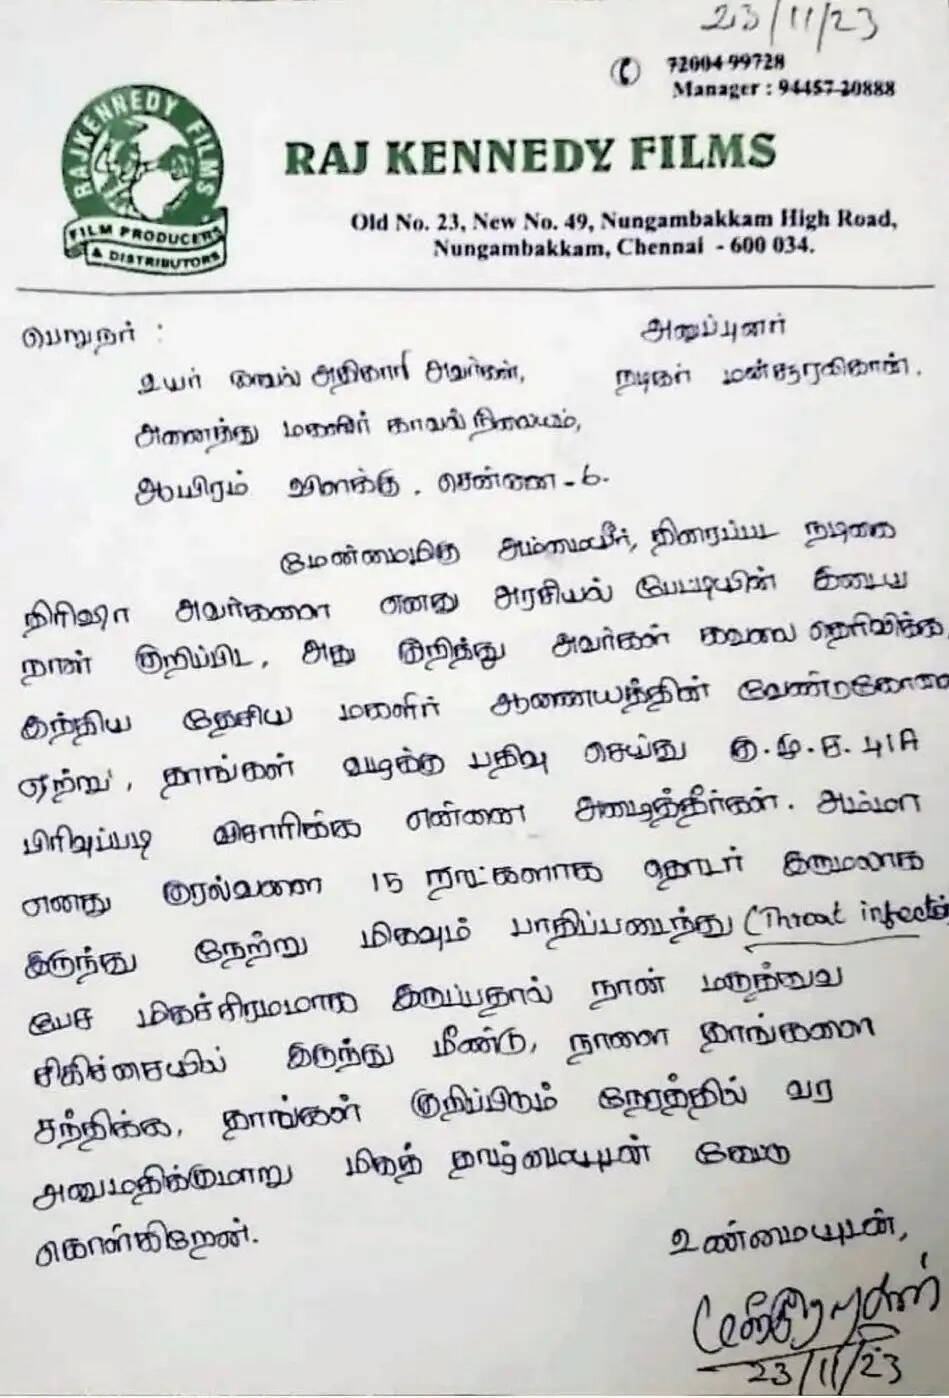 23/11/23
72004 99728
Manager : 94457 20888
RAJKENNEDY FILMS
FILM PRODUCERS
& DISTRIBUTORS
RAJ KENNEDY FILMS
Old No. 23, New No. 49, Nungambakkam High Road,
Nungambakkam, Chennai - 600 034.
பெறுநர் :
அனுப்புனர்
உயர் காவல் அதிகாரி அவர்கள்,
நடிகர் மன்சூரலிகான்.
அனைத்து மகளிர் காவல் நிலையம்,
ஆயிரம் விளக்கு. சென்னை - 6.
மேன்மைமிகு அம்மையீர், திரைப்பட நடிகை
திரிஷா அவர்களை எனது அரசியல் பேட்டியின் இடையே
நான் குறிப்பிட, அது குறித்து அவர்கள் கவலை தெரிவிக்க,
இந்திய தேசிய மகளிர் ஆணையத்தின் வேண்டுகோளை
ஏற்று, தாங்கள் வழக்கு பதிவு செய்து கு.மு.ச. 41A
பிரிவுப்படி விசாரிக்க என்னை அழைத்தீர்கள். அம்மா
எனது குரல்வளை 15 நாட்களாக தொடர் இருமலாக
இருந்து நேற்று மிகவும் பாதிப்படைந்து (Throat infection
பேச மிகச்சிரமமாக இருப்பதால் நான் மருத்துவ
சிகிச்சையில் இருந்து மீண்டு, நாளை தாங்களை
சந்திக்க, தாங்கள் குறிப்பிடும் நேரத்தில் வர
அனுமதிக்குமாறு மிகத் தாழ்மையுடன் கேட்டு
கொள்கிறேன்.
உண்மையுடன்,
23/11/23